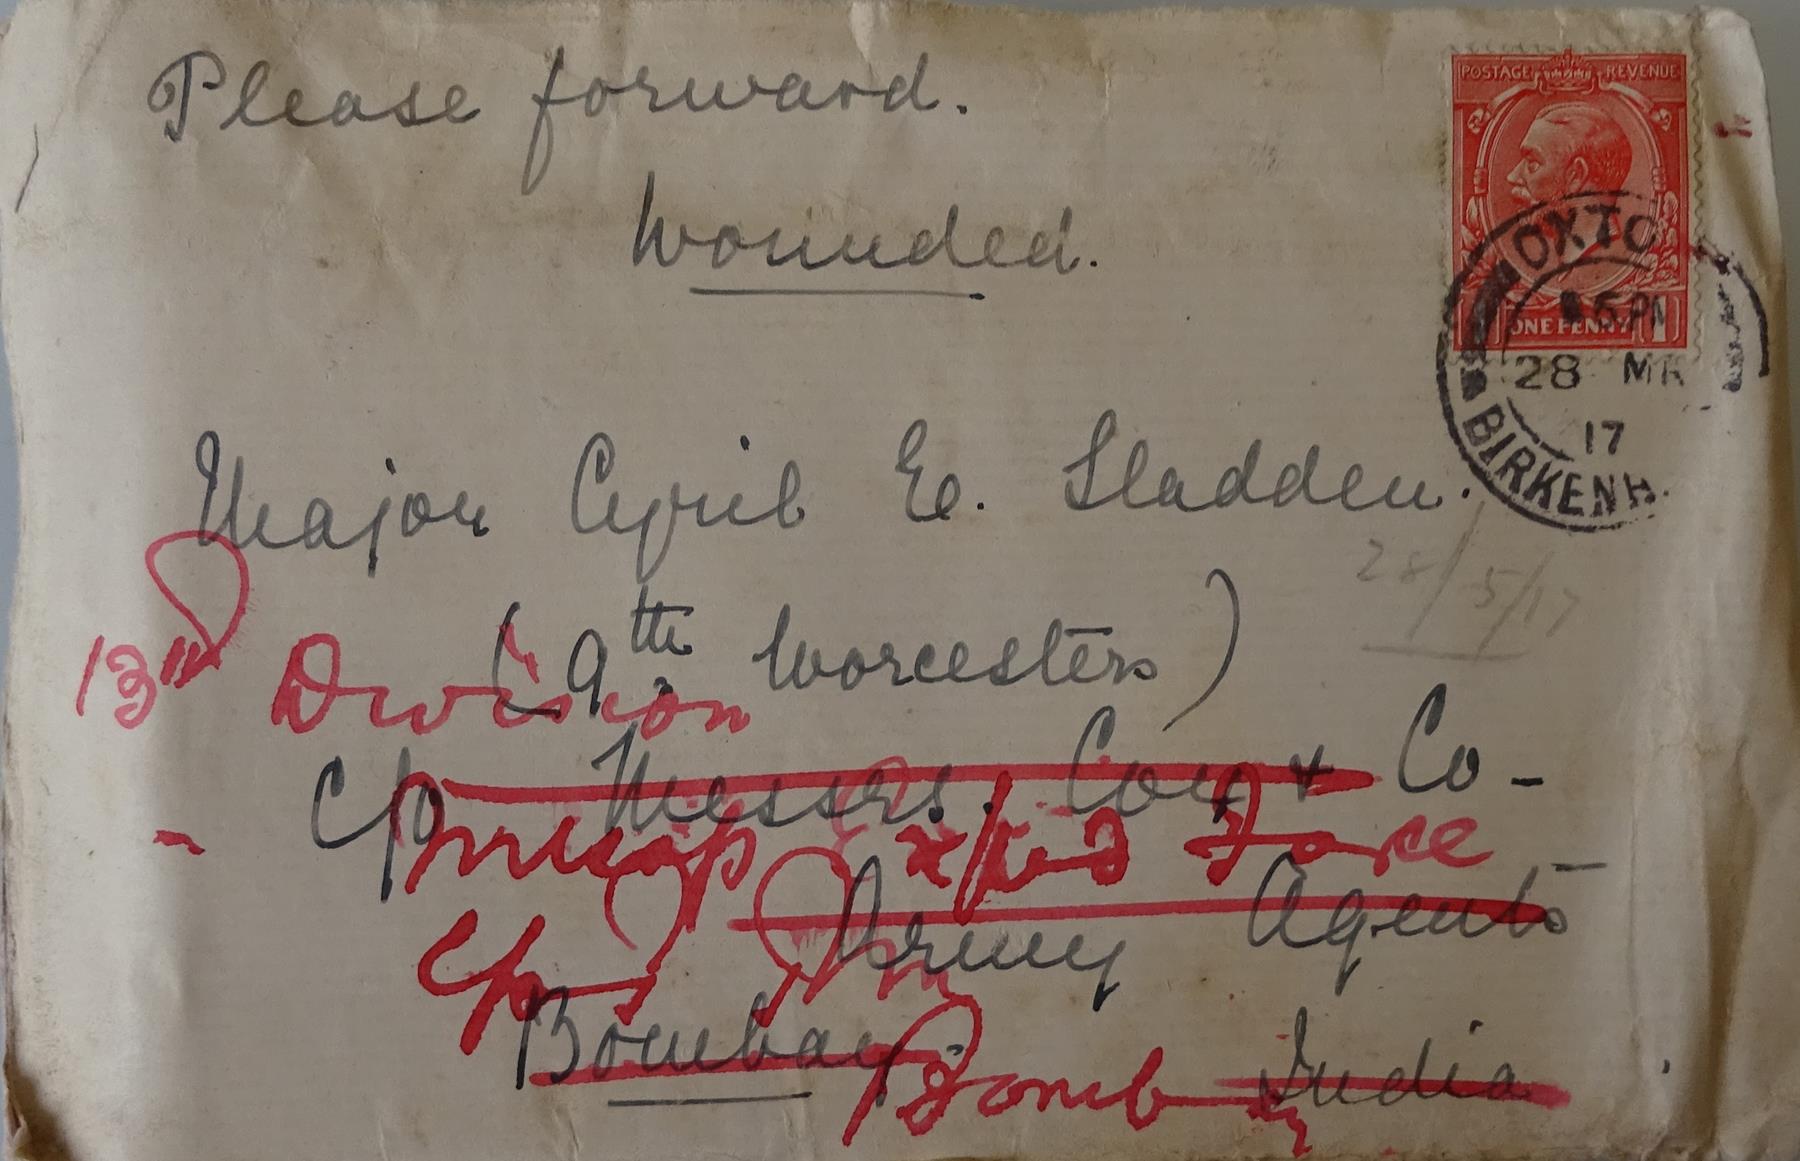 Please forward.
Wounded.
POSTAGE REVENUE
ONE PENNY 1
OXTO
5 PM
28 MR
17
BIRKENH
Major Cyril E. Sladden.
28/5/17
(9th Worcesters)
13th Division
c/o Messrs. Cox & Co -
Mesop Exped Force
Army Agents
c/o
Bombay.
India
Bombay